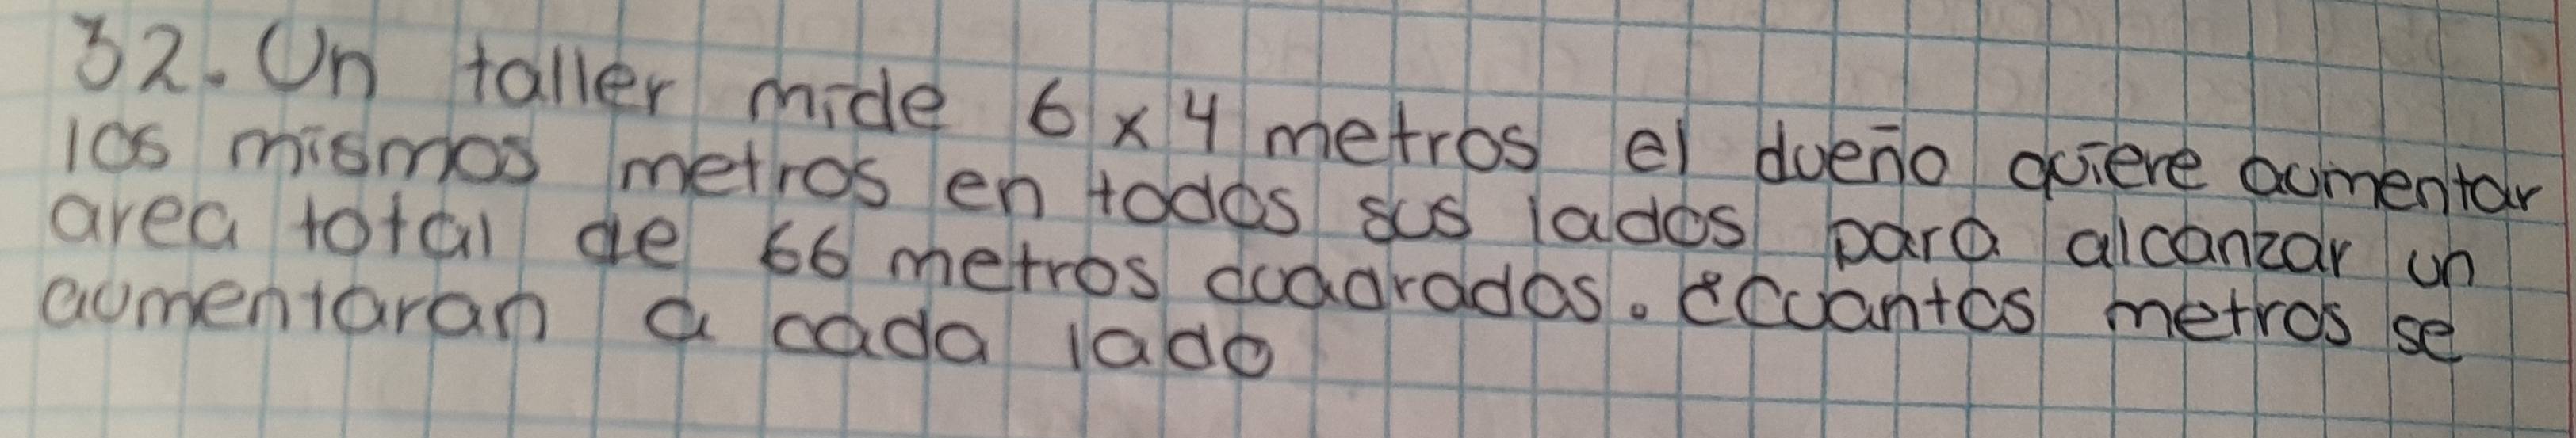 32. Un taller mide 6 x 4 metros el dueño quiere aumentar
los mismos metros en todos sus lados para alcanzar un
area total de 66 metros cuadrados. ¿Cuantos metros se
aumentaran a cada lado